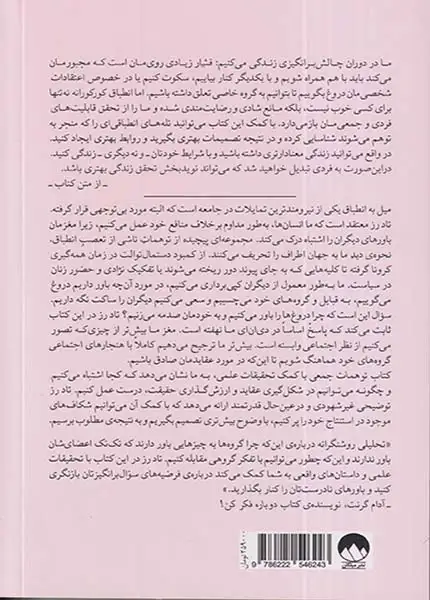 ما در دوران چالش‌برانگیزی زندگی می‌کنیم: فشار زیادی روی‌مان است که مجبورمان
می‌کند باید با هم همراه شویم و با یکدیگر کنار بیاییم، سکوت کنیم یا در خصوص اعتقادات
شخصی‌مان دروغ بگوییم تا بتوانیم به گروه خاصی تعلق داشته باشیم. اما انطباق کورکورانه نه‌تنها
برای کسی خوب نیست، بلکه مانع شادی و رضایت‌مندی شده و ما را از تحقق قابلیت‌های
فردی و جمعی‌مان بازمی‌دارد. با کمک این کتاب می‌توانید تله‌های انطباقی‌ای را که منجر به
توهم می‌شوند شناسایی کرده و در نتیجه تصمیمات بهتری بگیرید و روابط بهتری ایجاد کنید.
در واقع می‌توانید زندگی معنادارتری داشته باشید و با شرایط خودتان ـ و نه دیگری ـ زندگی کنید.
دراین‌صورت به فردی تبدیل خواهید شد که می‌تواند نویدبخش تحقق زندگی بهتری باشد.
ـ از متن کتاب ـ
میل به انطباق یکی از نیرومندترین تمایلات در جامعه است که البته مورد بی‌توجهی قرار گرفته.
تاد رز معتقد است که ما انسان‌ها، به‌طور مداوم برخلاف منافع خود عمل می‌کنیم، زیرا مغزمان
باورهای دیگران را اشتباه درک می‌کند. مجموعه‌ای پیچیده از توهمات ناشی از تعصبِ انطباق،
نحوه‌ی دید ما به جهان اطراف را تحریف می‌کنند. از کمبود دستمال‌توالت در زمان همه‌گیری
کرونا گرفته تا کلیه‌هایی که به جای پیوند دور ریخته می‌شوند یا تفکیک نژادی و حضور زنان
در سیاست. ما به‌طور معمول از دیگران کپی‌برداری می‌کنیم، در مورد آن‌چه باور داریم دروغ
می‌گوییم، به قبایل و گروه‌های خود می‌چسبیم و سعی می‌کنیم دیگران را ساکت نگه داریم.
سؤال این است که چرا دروغ‌ها را باور می‌کنیم و به خودمان صدمه می‌زنیم؟ تاد رز در این کتاب
ثابت می‌کند که پاسخ اساساً در دی‌ان‌ای ما نهفته است. مغز ما بیش‌تر از چیزی‌که تصور
می‌کنیم از نظر اجتماعی وابسته است. بیش‌تر ما ترجیح می‌دهیم کاملاً با هنجارهای اجتماعی
گروه‌های خود هماهنگ شویم تا این‌که در مورد عقایدمان صادق باشیم.
کتاب توهمات جمعی با کمک تحقیقات علمی، به ما نشان می‌دهد که کجا اشتباه می‌کنیم
و چگونه می‌توانیم در شکل‌گیری عقاید و ارزش‌گذاری حقیقت، درست عمل کنیم. تاد رز
توضیحی غیرشهودی و درعین‌حال قدرتمند ارائه می‌دهد که با کمک آن می‌توانیم شکاف‌های
موجود در استنتاج خود را پر کنیم، با وضوح بیش‌تری تصمیم بگیریم و به نتیجه‌ی مطلوب برسیم.
«تحلیلی روشنگرانه درباره‌ی این‌که چرا گروه‌ها به چیزهایی باور دارند که تک‌تک اعضای‌شان
باور ندارند و این‌که چطور می‌توانیم با تفکر گروهی مقابله کنیم. تاد رز در این کتاب با تحقیقات
علمی و داستان‌های واقعی به شما کمک می‌کند درباره‌ی فرضیه‌های سؤال‌برانگیزتان بازنگری
کنید و باورهای نادرست‌تان را کنار بگذارید.»
ـ آدام گرنت، نویسنده‌ی کتاب دوباره فکر کن!
۲۵۹۰۰۰ تومان
9 786222 546243
نشر میلکان